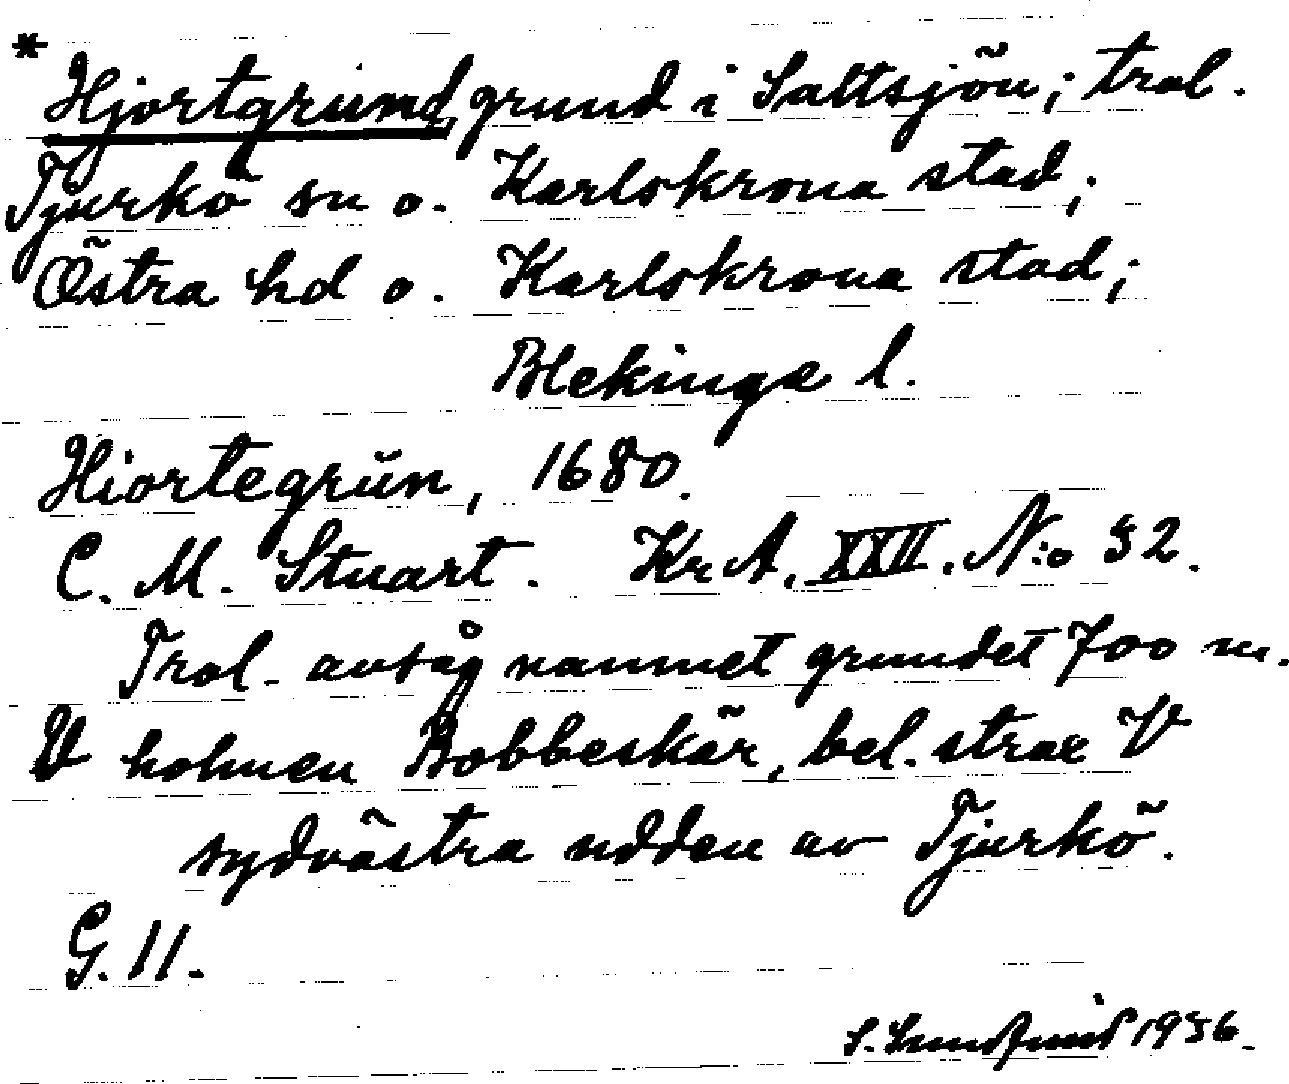 * Hjortgrund, grund i Saltsjön; trol.
Tjurkö sn o. Karlskrona stad;
Östra hd o. Karlskrona stad;
Blekinge l.
Hiortegrŭn, 1680.
C. M. Stuart. KrA. XXII. N:o 52.
Trol. avsåg namnet grundet 700 m.
V holmen Bobbeskär, bel. strax V
sydvästra udden av Tjurkö.
G. 11.
S. 1956.